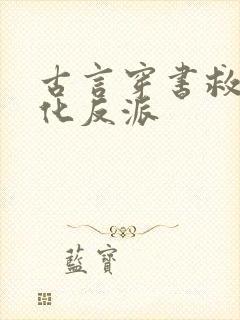 古言穿书救
化反派
蓝寶